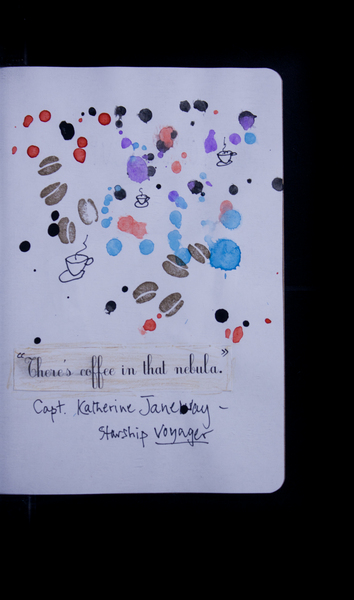 "There's coffee in that nebula."
Capt. Katherine Janeway -
Starship Voyager